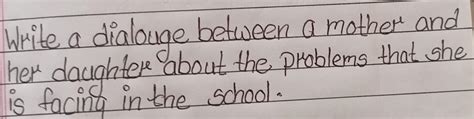 Write a dialouge between a mother and
her daughter about the problems that she
is facing in the school.